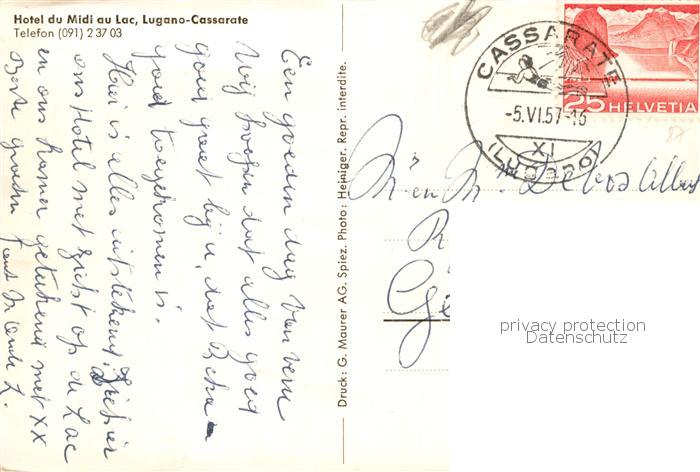 Hotel du Midi au Lac, Lugano-Cassarate
Telefon (091) 2 37 03
Een goeden dag van
Wij hopen dat alles goed
gaat bij u, dat
goed toegekomen is.
Hier is alles uitstekend,
ons Hotel met zicht op de Lac
en ons kamer getekend met XX
Beste groeten
Druck: G. Maurer AG. Spiez. Photo: Heiniger. Repr. interdite.
CASSARATE
-5.VI.57-16
XI
(Lugano)
25 HELVETIA
Devos Albert
R
privacy protection
Datenschutz